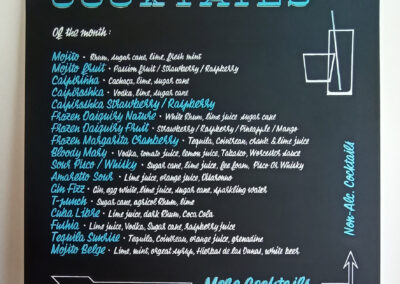 COCKTAILS
Of the month:
Mojito • Rhum, sugar cane, lime, fresh mint
Mojito fruit • Passion fruit / Strawberry / Raspberry
Caïpirinha • Cachaca, lime, sugar cane
Caïpiroshka • Vodka, lime, sugar cane
Caïpiroshka Strawberry / Raspberry
Frozen Daiquiry Nature • White Rhum, lime juice, sugar cane
Frozen Daiquiry Fruit • Strawberry / Raspberry / Pineapple / Mango
Frozen Margarita Cranberry • Tequila, Cointreau, cranb. & lime juice
Bloody Mary • Vodka, tomato juice, lemon juice, Tabasco, Worcester sauce
Sour Pisco / Whisky • Sugar cane, lime juice, Pisco Or Whisky
Amaretto Sour • Lime juice, orange juice, Disaronno
Gin Fizz • Gin, egg white, lime juice, sugar cane, sparkling water
T-punch • Sugar cane, agricol Rhum, lime
Cuba Libre • Lime juice, dark Rhum, Coca Cola
Fushia • Lime juice, Vodka, Sugar Cane, Raspberry juice
Tequila Sunrise • Tequila, Cointreau, orange juice, grenadine
Mojito Belge • Lime, mint, orgeat syrup, Hierbas de las Dunas, white beer
Non-Alc. Cocktails
More Cocktails